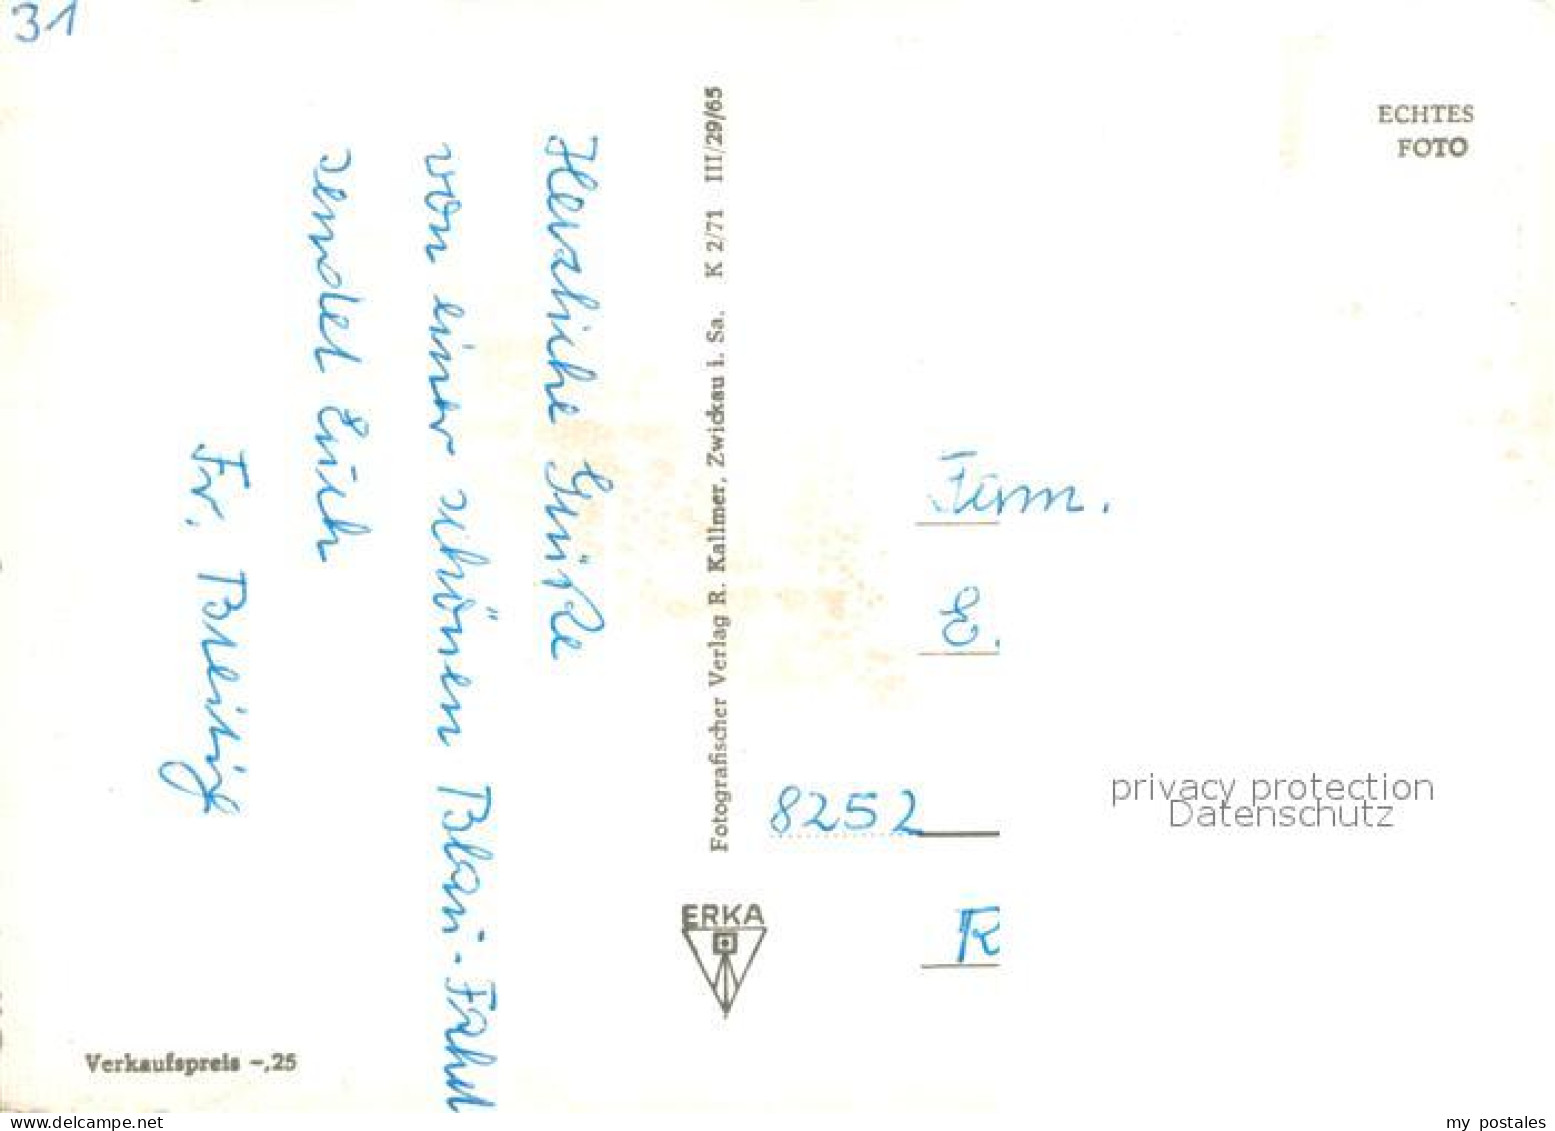 31
ECHTES
FOTO
Herzliche Grüße
von einer schönen Blau-Fahrt
sendet Euch
Fr.
Fotografischer Verlag R. Kallmer, Zwickau i. Sa. K 2/71 III/29/65
Fam.
E.
8252
R
privacy protection
Datenschutz
ERKA
Verkaufspreis -,25
www.delcampe.net
my_postales